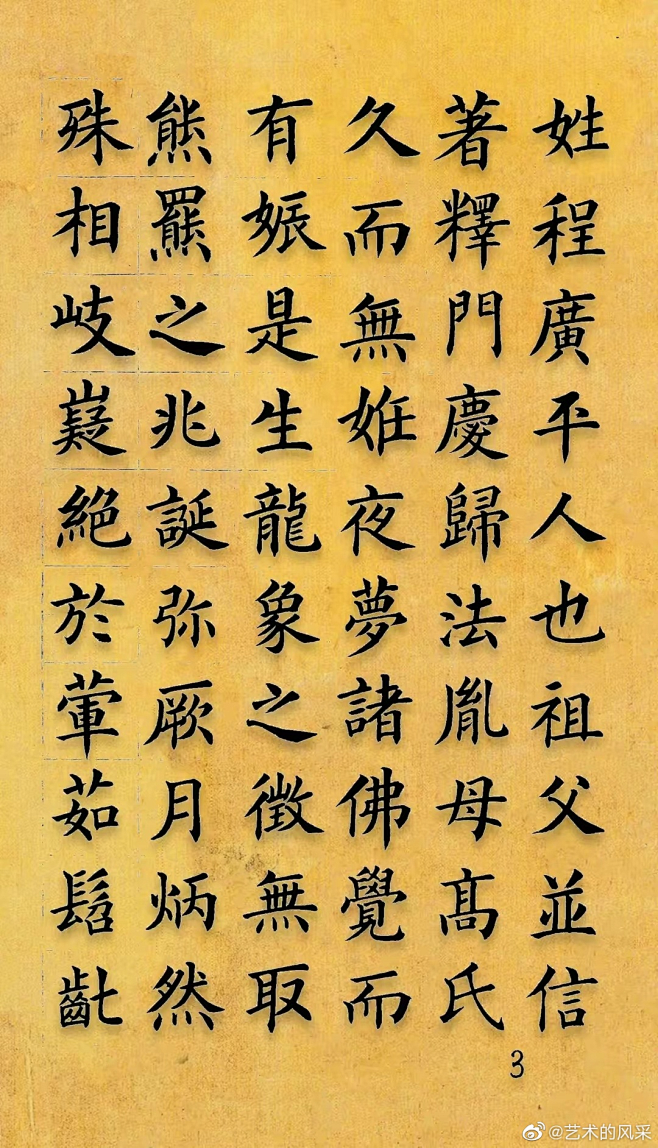 姓程廣平人也祖父並信
著釋門慶歸法胤母髙氏
久而無姙夜夢諸佛覺而
有娠是生龍象之徵無取
熊羆之兆誕弥厥月炳然
殊相岐嶷絕於葷茹髫齔
3
@艺术的风采